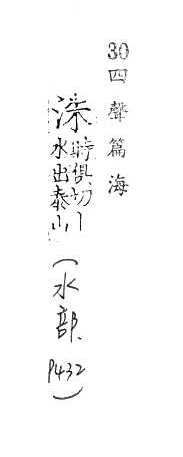 30 四聲篇海
洙 時俱切川
水出泰山
(水部 P432)